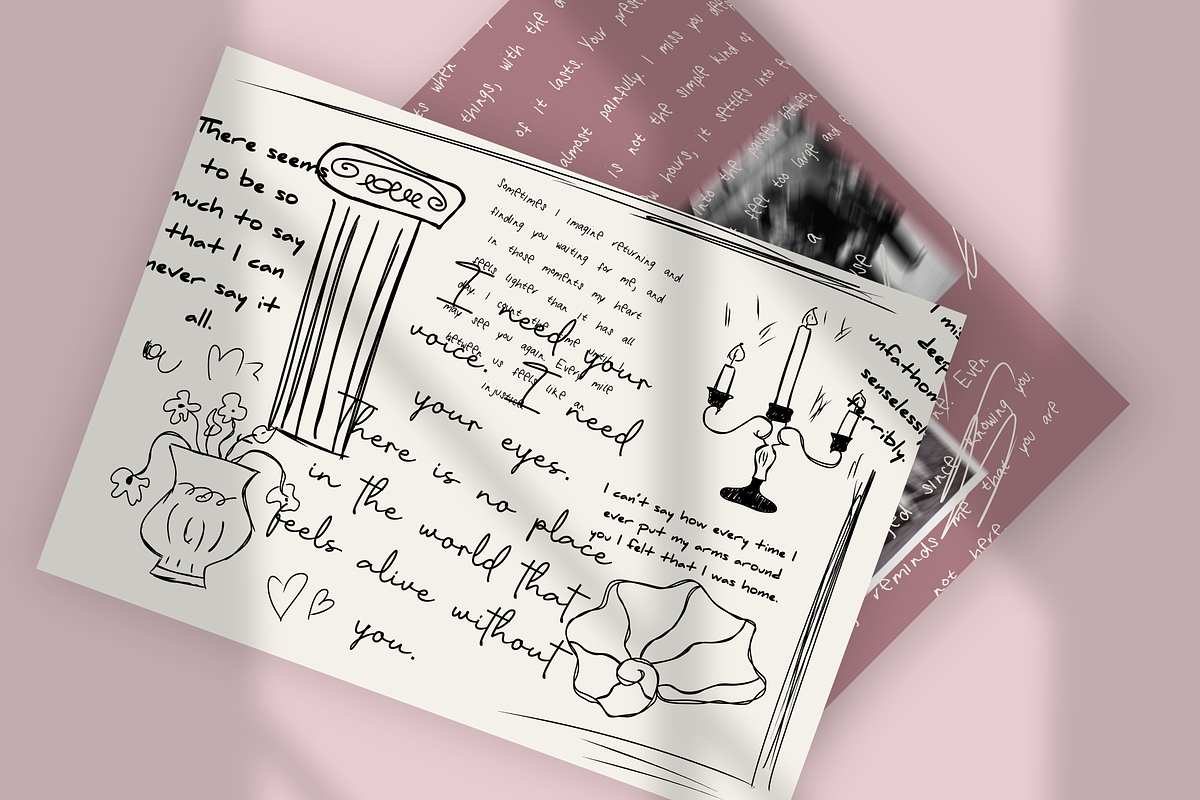 There seems
to be so
much to say
that I can
never say it
all.
Sometimes I imagine returning and
finding you waiting for me, and
in those moments my heart
feels lighter than it has all
day. I count the time until
may see you again. Even mile
between us feels like an
injustice
I need your
voice. I need
your eyes.
There is no place
in the world that
feels alive without
you.
I can't say how every time I
ever put my arms around
you I felt that I was home.
I mis
deep
unfathom
senseless
terribly
things, with the
of it lasts. Your prese
almost painfully. I miss you
is not the simple kind of
hours, it settles into
into the pauses between
feel too large and
a
Even
since knowing you.
reminds me that you are
not here